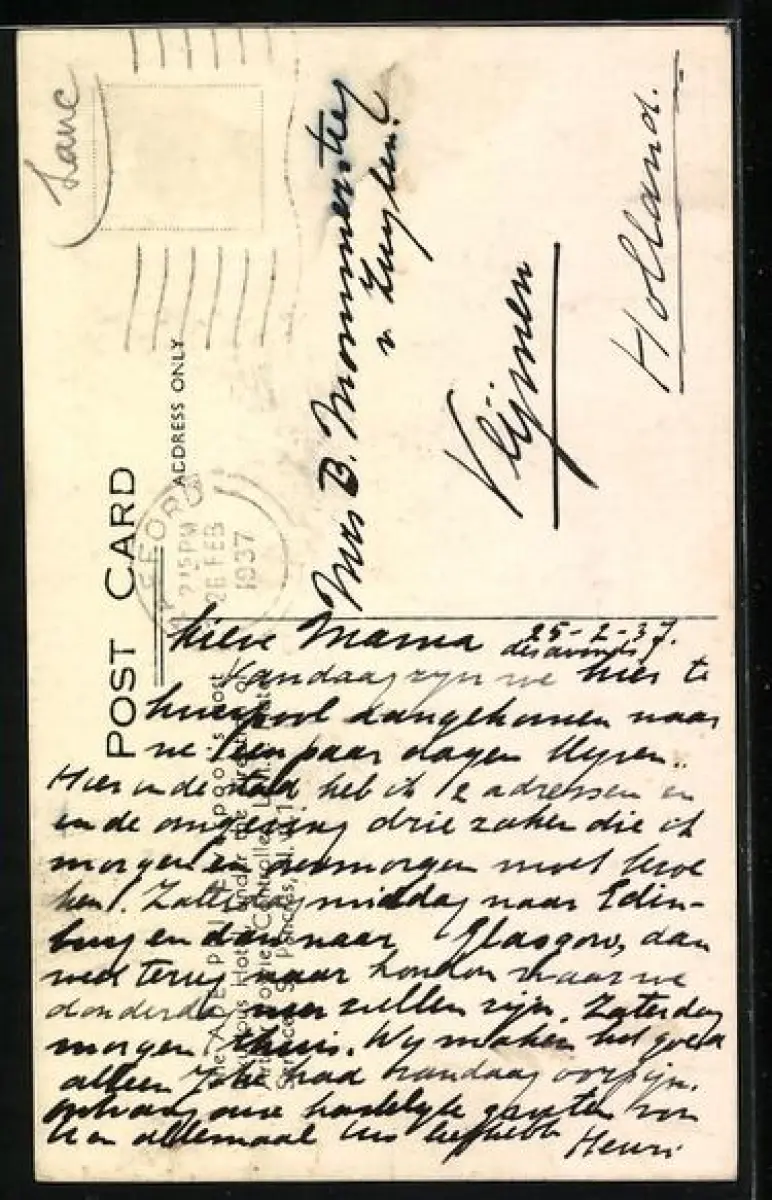 Lanc
POST CARD
ADDRESS ONLY
2 15 PM
26 FEB
1937
Mrs B. Mommersteeg
v. Luyben.
Vlijmen
Holland.
Lieve Mama 25-2-37.
des avonds
Vandaag zijn we hier te
Liverpool aangekomen naar
we een paar dagen
Hier in de stad heb ik 2 adressen en
in de omgeving drie zaken die ik
morgen en overmorgen moet bezoe
ken. Zaterdagmiddag naar Edin-
burg en dan naar Glasgow, dan
weer terug naar London waar we
donderdag weer zullen zijn. Zaterdag
morgen thuis. Wij maken het goed
alleen had vandaag oorpijn.
Ontvang onze hartelijke groeten van
U en allemaal uw liefhebb
Henri